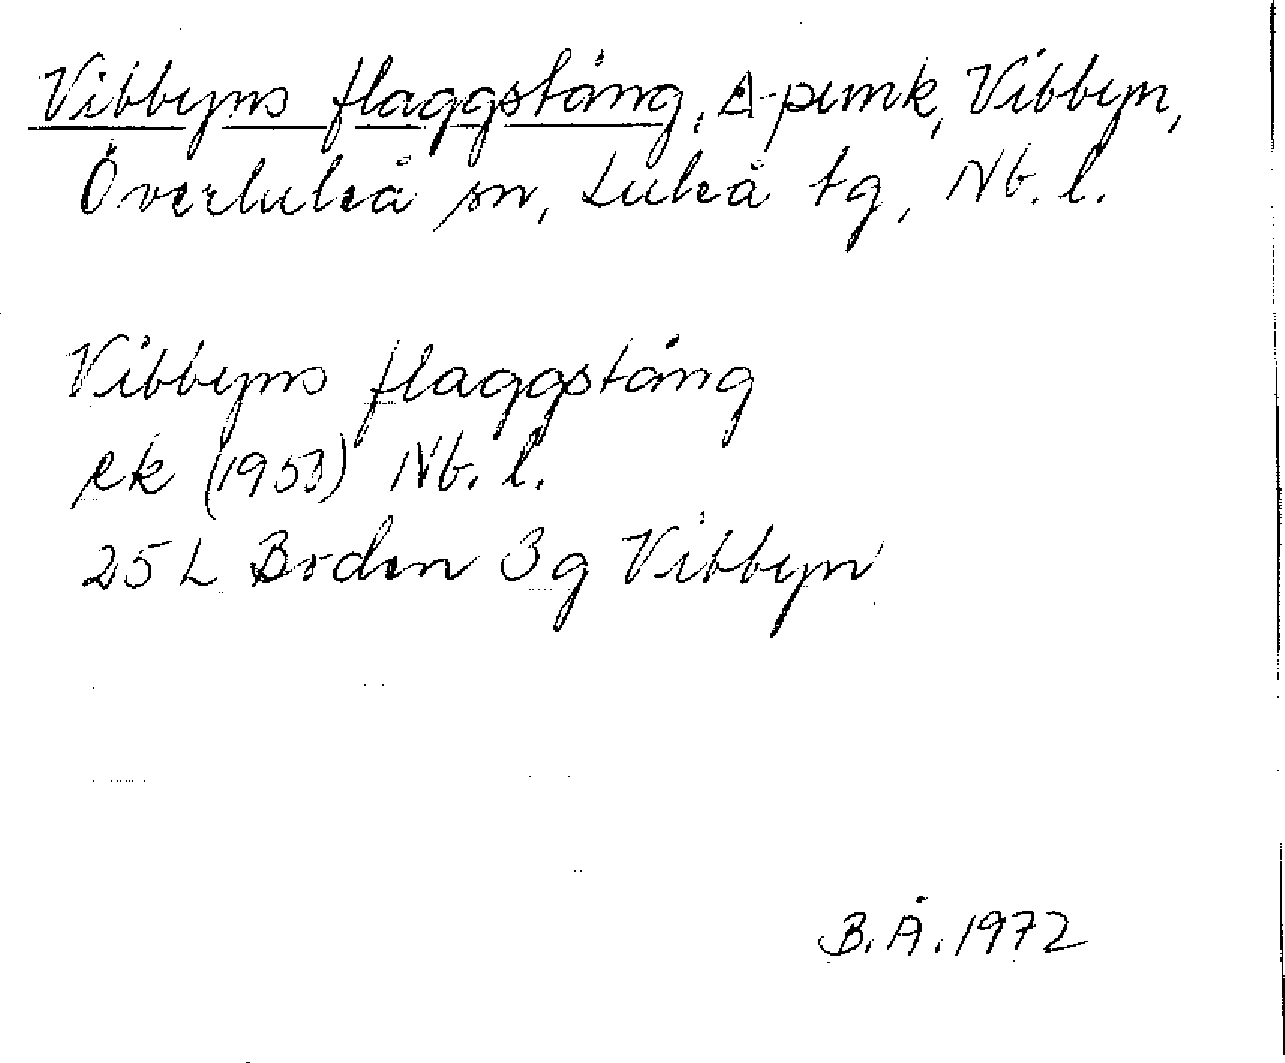 Vibbyns flaggstång, Δ-punk, Vibbyn,
Överluleå sn, Luleå tg, Nb. l.
Vibbyns flaggstång
rk (1953) Nb. l.
25 L Boden 3g Vibbyn
B.Å. 1972